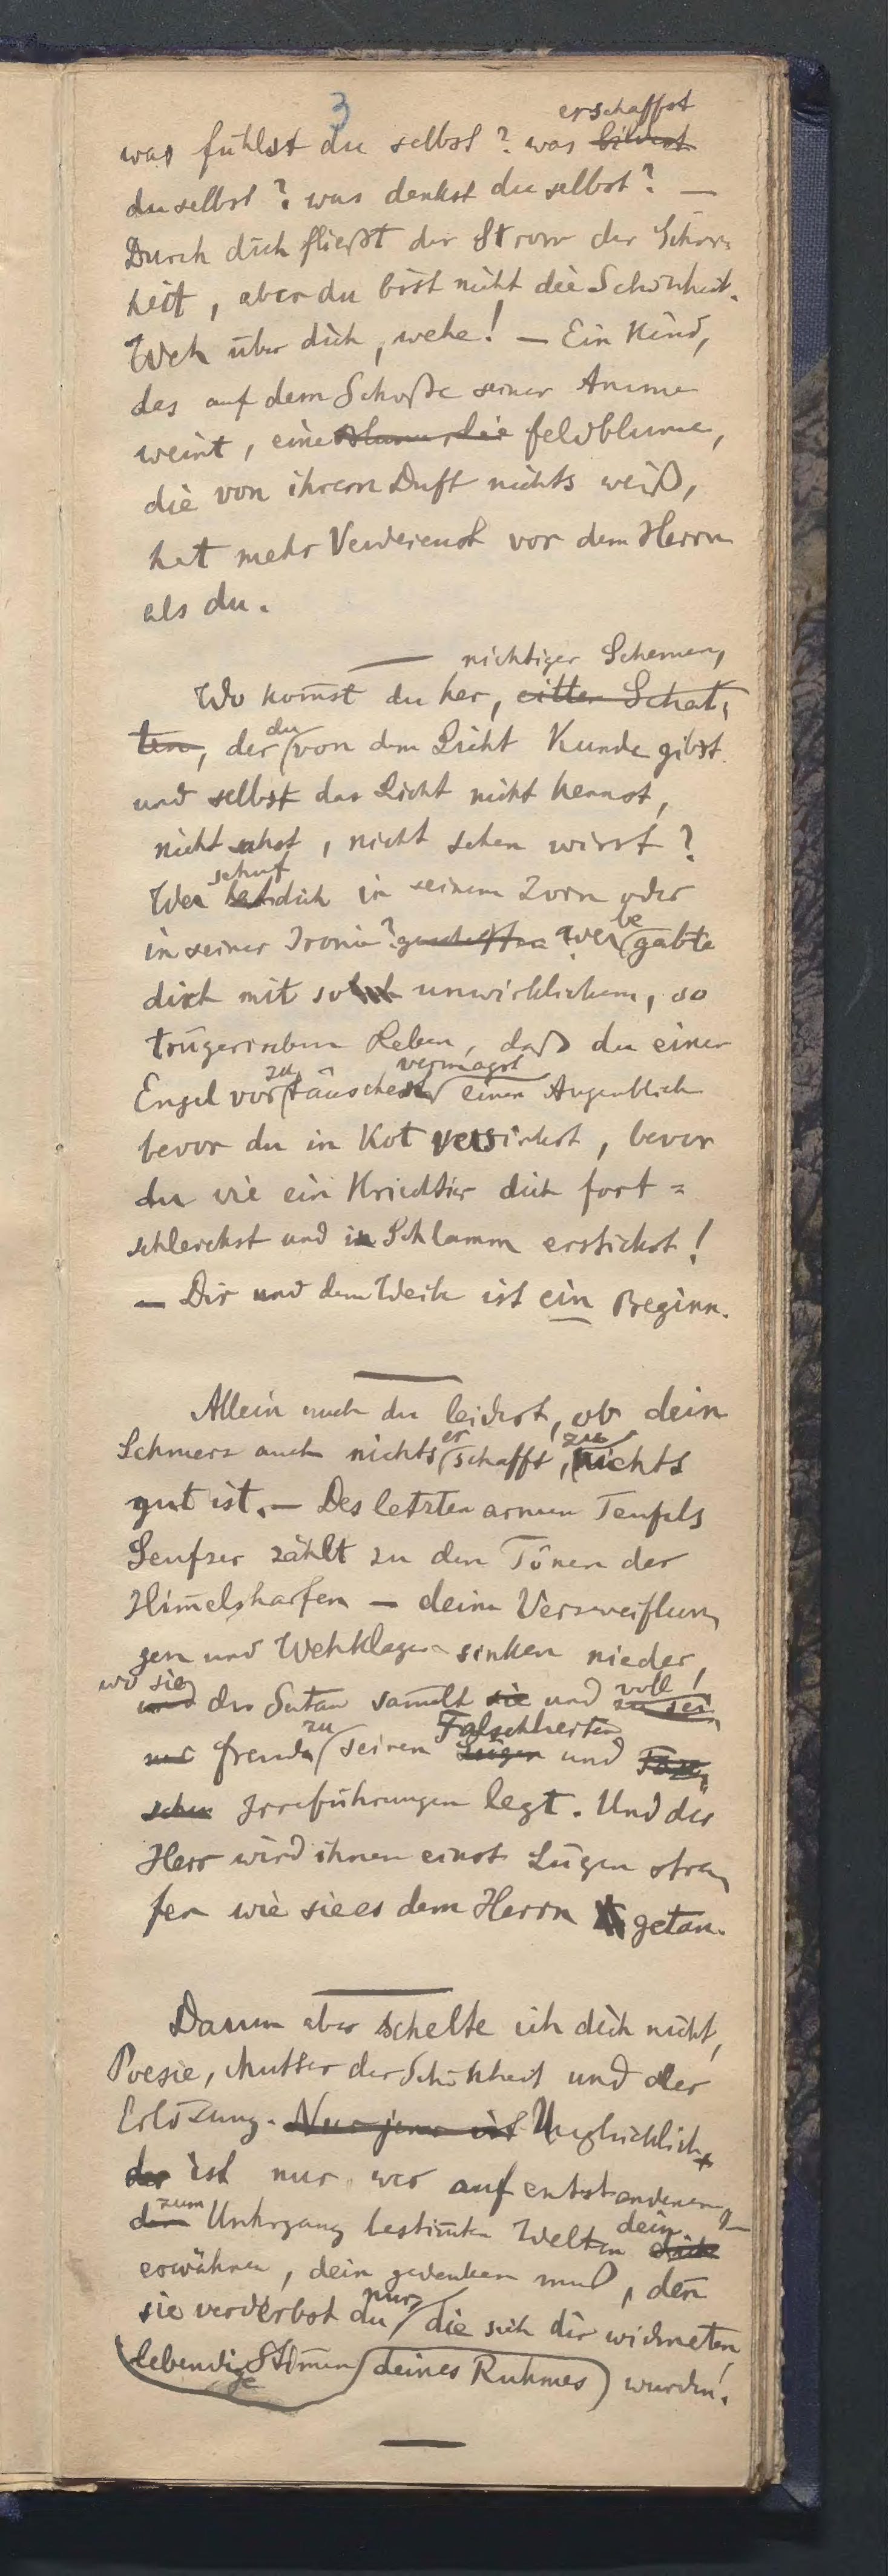 3
erschaffst
was fühlst du selbst? was bildest
du selbst? was denkst du selbst? —
Durch dich fließt der Strom der Schön-
heit, aber du bist nicht die Schönheit.
Weh über dich, wehe! — Ein Kind,
das auf dem Schoße seiner Amme
weint, eine Blume, die Feldblume,
die von ihrem Duft nichts weiß,
hat mehr Verdienst vor dem Herrn
als du.
nichtiger Schemen,
Wo kom̄st du her, eitler Schat-
ten, der du von dem Licht Kunde gibst
und selbst das Licht nicht kennst,
nicht sahst, nicht sehen wirst?
schuf
Wer hat dich in seinem Zorn oder
in seiner Ironie? geschaffen Wer begabte
dich mit so unwirklichem, so
trügerischem Leben, daß du einen
zu vermagst
Engel vortäuschest einen Augenblick
bevor du in Kot versinkst, bevor
du wie ein Kriechtier dich fort=
schleichst und in Schlamm erstickst!
— Dir und dem Weib ist ein Beginn.
Allein auch du leidest, ob dein
er zu
Schmerz auch nichts schafft, nichts
gut ist. — Des letzten armen Teufels
Seufzer zählt zu den Tönen der
Him̄elsharfen — deine Verzweiflun-
gen und Wehklagen sinken nieder,
wo sie voll
und der Satan sam̄elt sie und zu sei-
zu Falschheiten
ner freude seinen Lügen und
schen Irreführungen legt. Und der
Herr wird ihnen einst Lügen stra-
fen wie sie es dem Herrn getan.
Darum aber schelte ich dich nicht,
Poesie, Mutter der Schönheit und der
Erlösung. Nur jener ist Unglücklich
der ist nur wer auf entstandenen,
zum dein
dem Untergang bestim̄ten Welten dich
erwähnen, dein gedenken muß, den̄
nur
sie verderbst du die sich dir widmeten,
lebendige Stim̄en deines Ruhmes wurden.